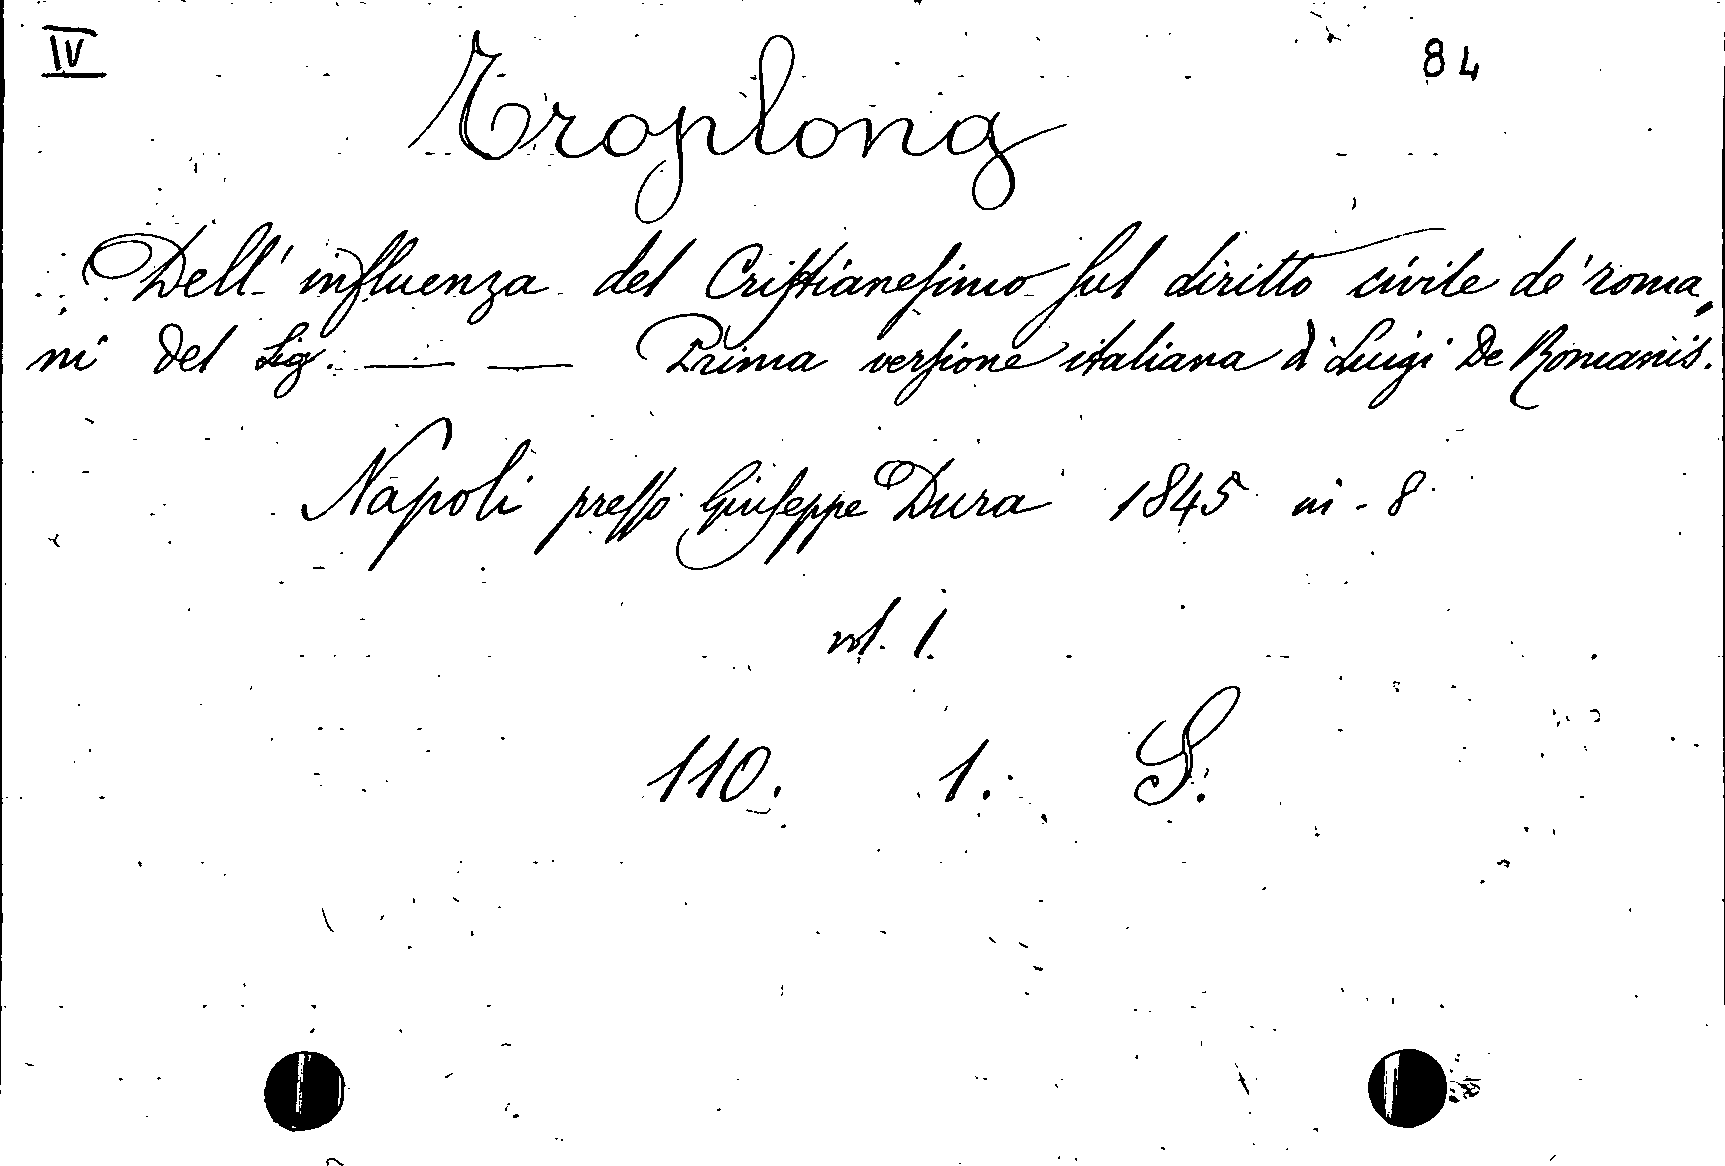 IV 84
Troplong
Dell' influenza del Cristianesimo sul diritto civile de' roma„
ni del Sig. — — Prima versione italiana di Luigi De Romanis.
Napoli presso Giuseppe Dura 1845 in-8
vol. 1.
110. 1. S.